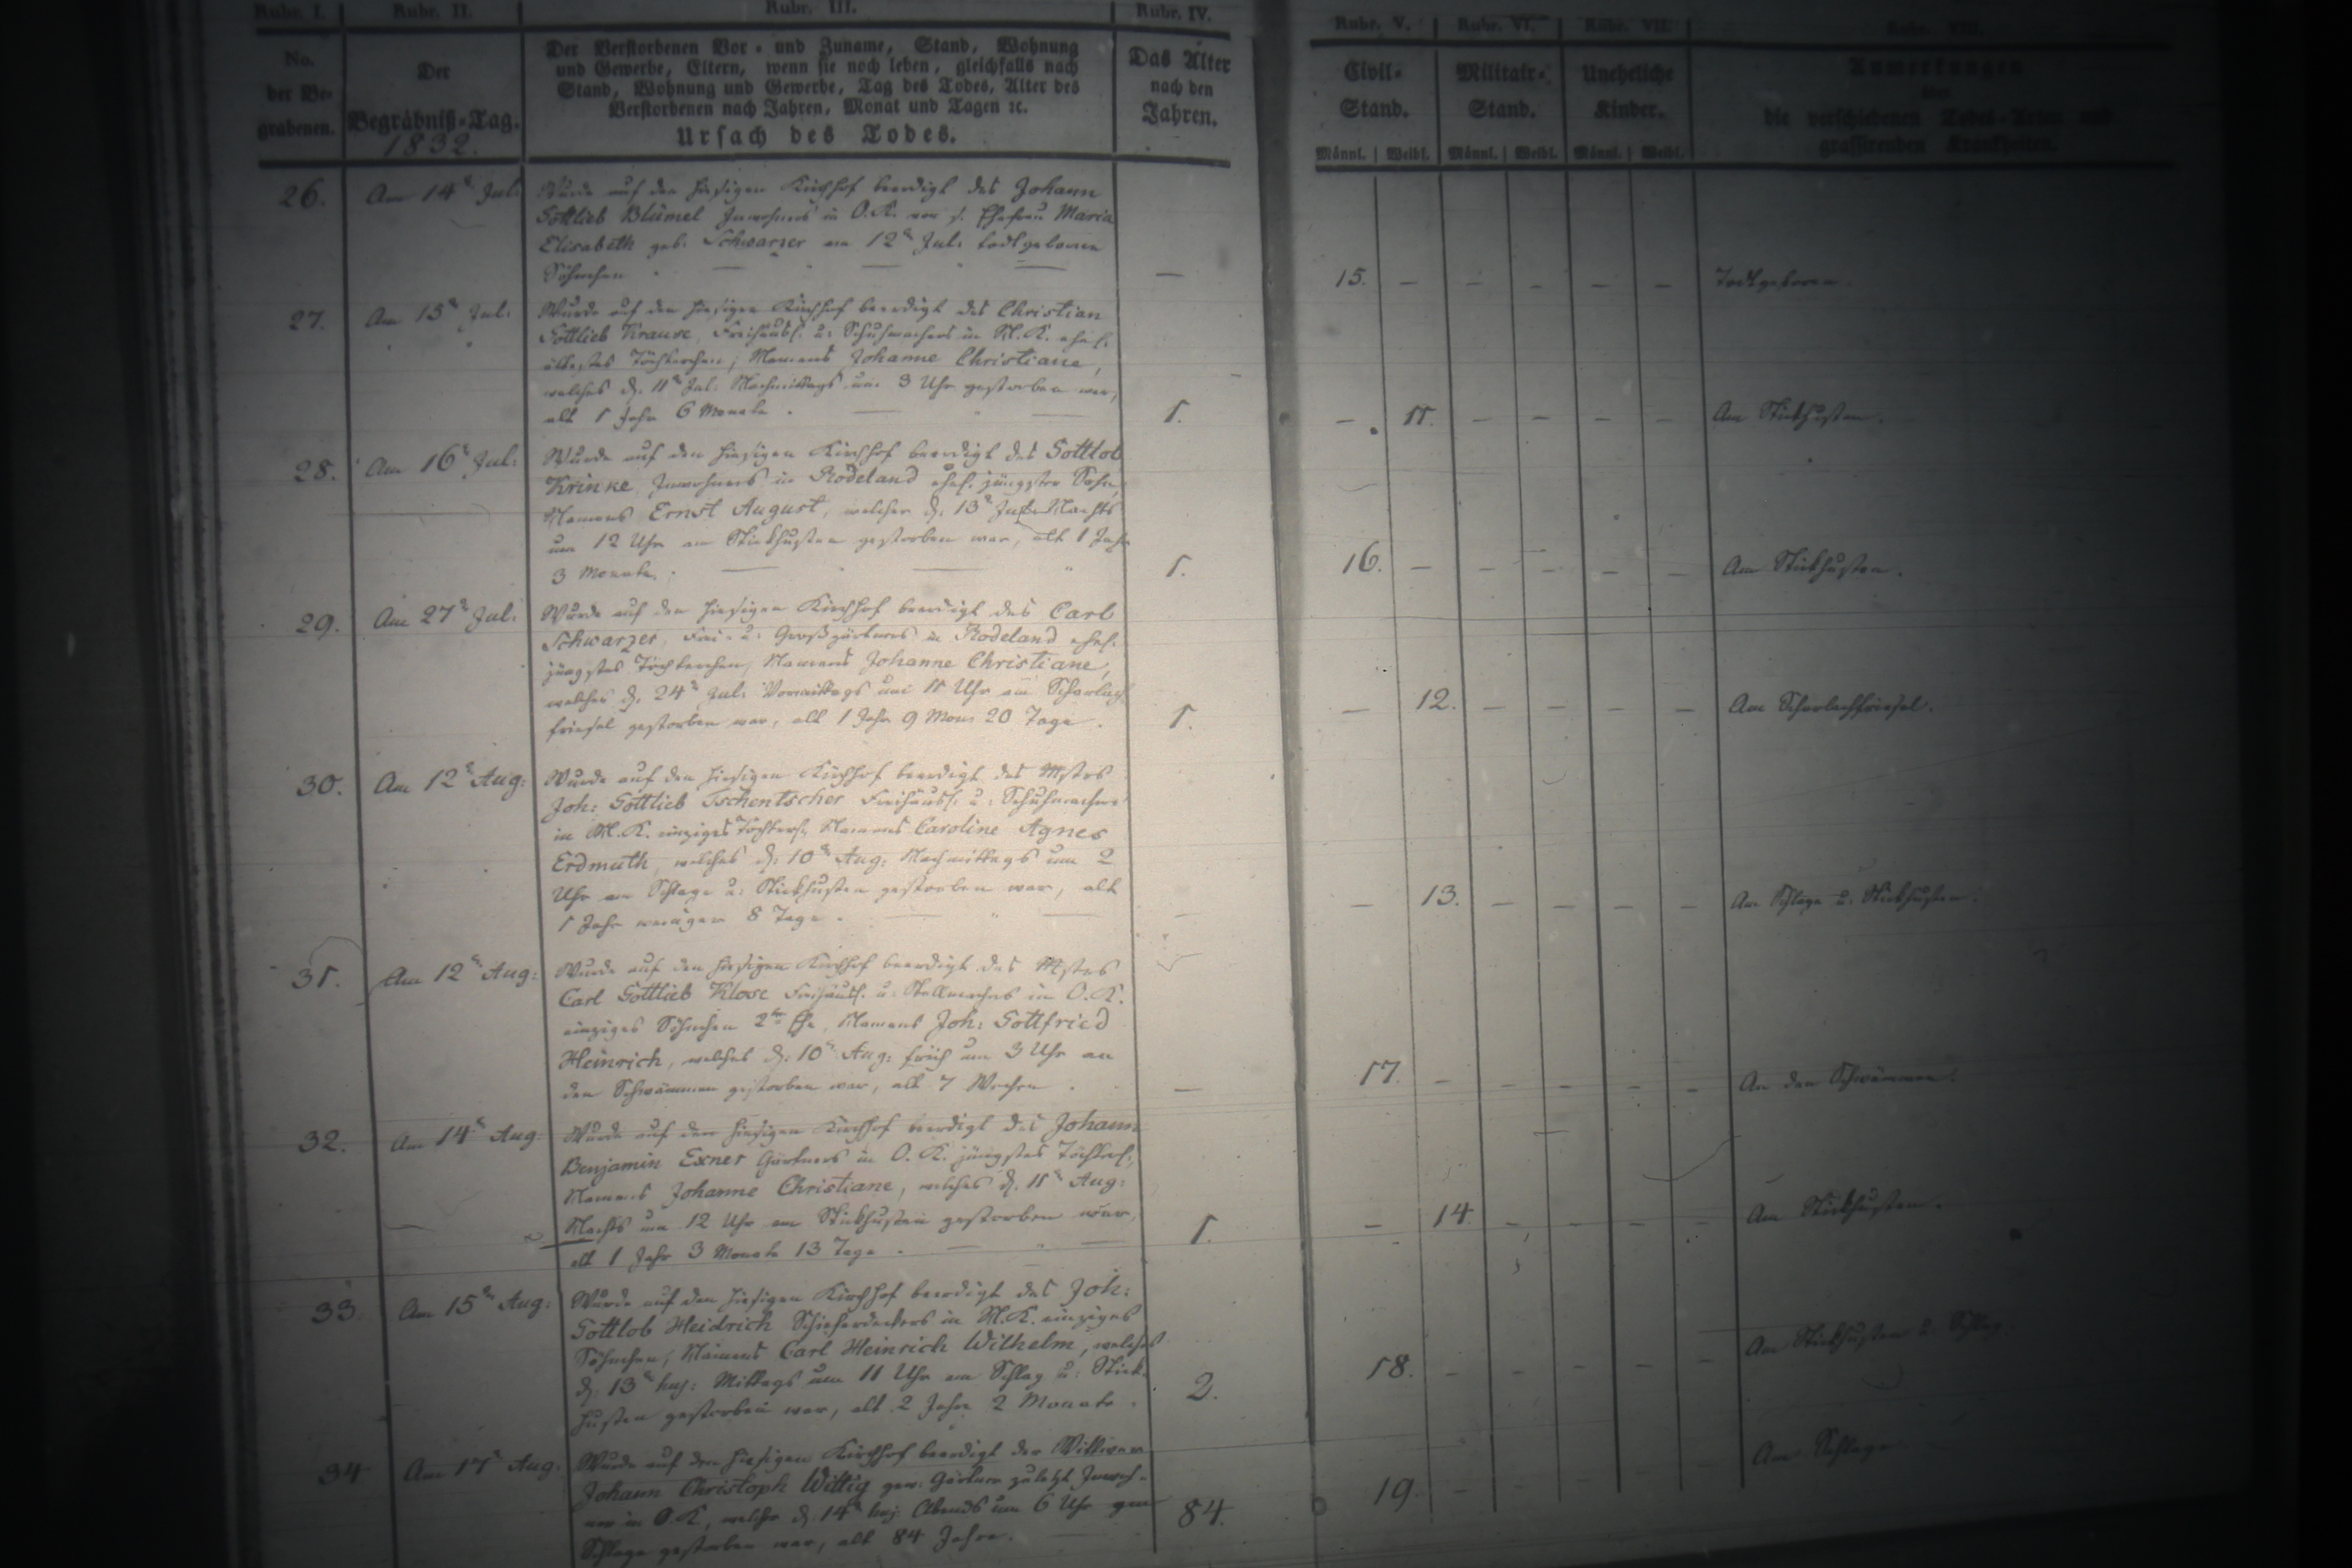 Rubr. I. Rubr. II. Rubr. III. Rubr. IV. Rubr. V. Rubr. VI. Rubr. VII. Rubr. VIII.
No.
der Be-
grabenen.
Der
Begräbniß-Tag.
1832.
Der Verstorbenen Vor- und Zuname, Stand, Wohnung
und Gewerbe, Eltern, wenn sie noch leben, gleichfalls nach
Stand, Wohnung und Gewerbe, Tag des Todes, Alter des
Verstorbenen nach Jahren, Monat und Tagen ꝛc.
Ursach des Todes.
Das Alter
nach den
Jahren.
Civil-
Stand.
Männl. | Weibl.
Militair-
Stand.
Männl. | Weibl.
Uneheliche
Kinder.
Männl. | Weibl.
Anmerkungen
über
die verschiedenen Todes-Arten und
grassirenden Krankheiten.
26. Am 14n Jul:
Wurde auf den hiesigen Kirchhof beerdigt des Johann
Gottlieb Blümel Inwohners in O.K. von s. Ehefrau Maria
Elisabeth geb. Schwarzer am 12n Jul: todtgeborne
Söhnchen — — —
— 15. — — — — — Todtgeboren.
27. Am 15n Jul:
Wurde auf den hiesigen Kirchhof beerdigt des Christian
Gottlieb Krause, Freihäusl. u: Schuhmachers in M.K. ehel.
ältestes Töchterchen, Namens Johanne Christiane,
welches d. 11n Jul: Nachmittags um 3 Uhr gestorben war,
alt 1 Jahr 6 Monate. — —
1. — 11. — — — — Am Stickhusten.
28. Am 16n Jul:
Wurde auf den hiesigen Kirchhof beerdigt des Gottlob
Krinke, Inwohners in Rodeland ehel. jüngster Sohn,
Namens Ernst August, welcher d. 13n Jul: Nachts
um 12 Uhr am Stickhusten gestorben war, alt 1 Jahr
3 Monate. — —
1. 16. — — — — — Am Stickhusten.
29. Am 27n Jul:
Wurde auf den hiesigen Kirchhof beerdigt des Carl
Schwarzer, Frei- u: Großgärtners in Rodeland ehel.
jüngstes Töchterchen, Namens Johanne Christiane,
welches d. 24n Jul: Vormittags um 11 Uhr am Scharlach-
friesel gestorben war, alt 1 Jahr 9 Mon: 20 Tage.
1. — 12. — — — — Am Scharlachfriesel.
30. Am 12n Aug:
Wurde auf den hiesigen Kirchhof beerdigt des Mstrs
Joh: Gottlieb Tschentscher Freihäusl. u: Schuhmachers
in M.K. einziges Töchterch. Namens Caroline Agnes
Erdmuth, welches d: 10n Aug: Nachmittags um 2
Uhr am Schlage u: Stickhusten gestorben war, alt
1 Jahr weniger 8 Tage. — —
— — 13. — — — — Am Schlage u: Stickhusten.
31. Am 12n Aug:
Wurde auf den hiesigen Kirchhof beerdigt des Mstrs
Carl Gottlieb Klose Freihäusl. u: Stellmachers in O.K.
einziges Söhnchen 2ter Ehe, Namens Joh: Gottfried
Heinrich, welches d: 10n Aug: früh um 3 Uhr an
den Schwämmen gestorben war, alt 7 Wochen.
— 17. — — — — — An den Schwämmen.
32. Am 14n Aug:
Wurde auf den hiesigen Kirchhof beerdigt des Johann
Benjamin Exner Gärtners in O.K. jüngstes Töchterch.,
Namens Johanne Christiane, welches d. 11n Aug:
Nachts um 12 Uhr am Stickhusten gestorben war,
alt 1 Jahr 3 Monate 13 Tage. — —
1. — 14. — — — — Am Stickhusten.
33. Am 15n Aug:
Wurde auf den hiesigen Kirchhof beerdigt des Joh:
Gottlob Heidrich Schieferdeckers in M.K. einziges
Söhnchen, Namens Carl Heinrich Wilhelm, welches
d: 13n huj: Mittags um 11 Uhr am Schlag u: Stick-
husten gestorben war, alt 2 Jahre 2 Monate.
2. 18. — — — — — Am Stickhusten u: Schlag.
34 Am 17n Aug:
Wurde auf den hiesigen Kirchhof beerdigt der Wittwer
Johann Christoph Wittig gew: Gärtner zuletzt Inwoh-
ner in O.K, welcher d. 14n huj: Abends um 6 Uhr am
Schlage gestorben war, alt 84 Jahre.
84. 19. — — — — Am Schlage